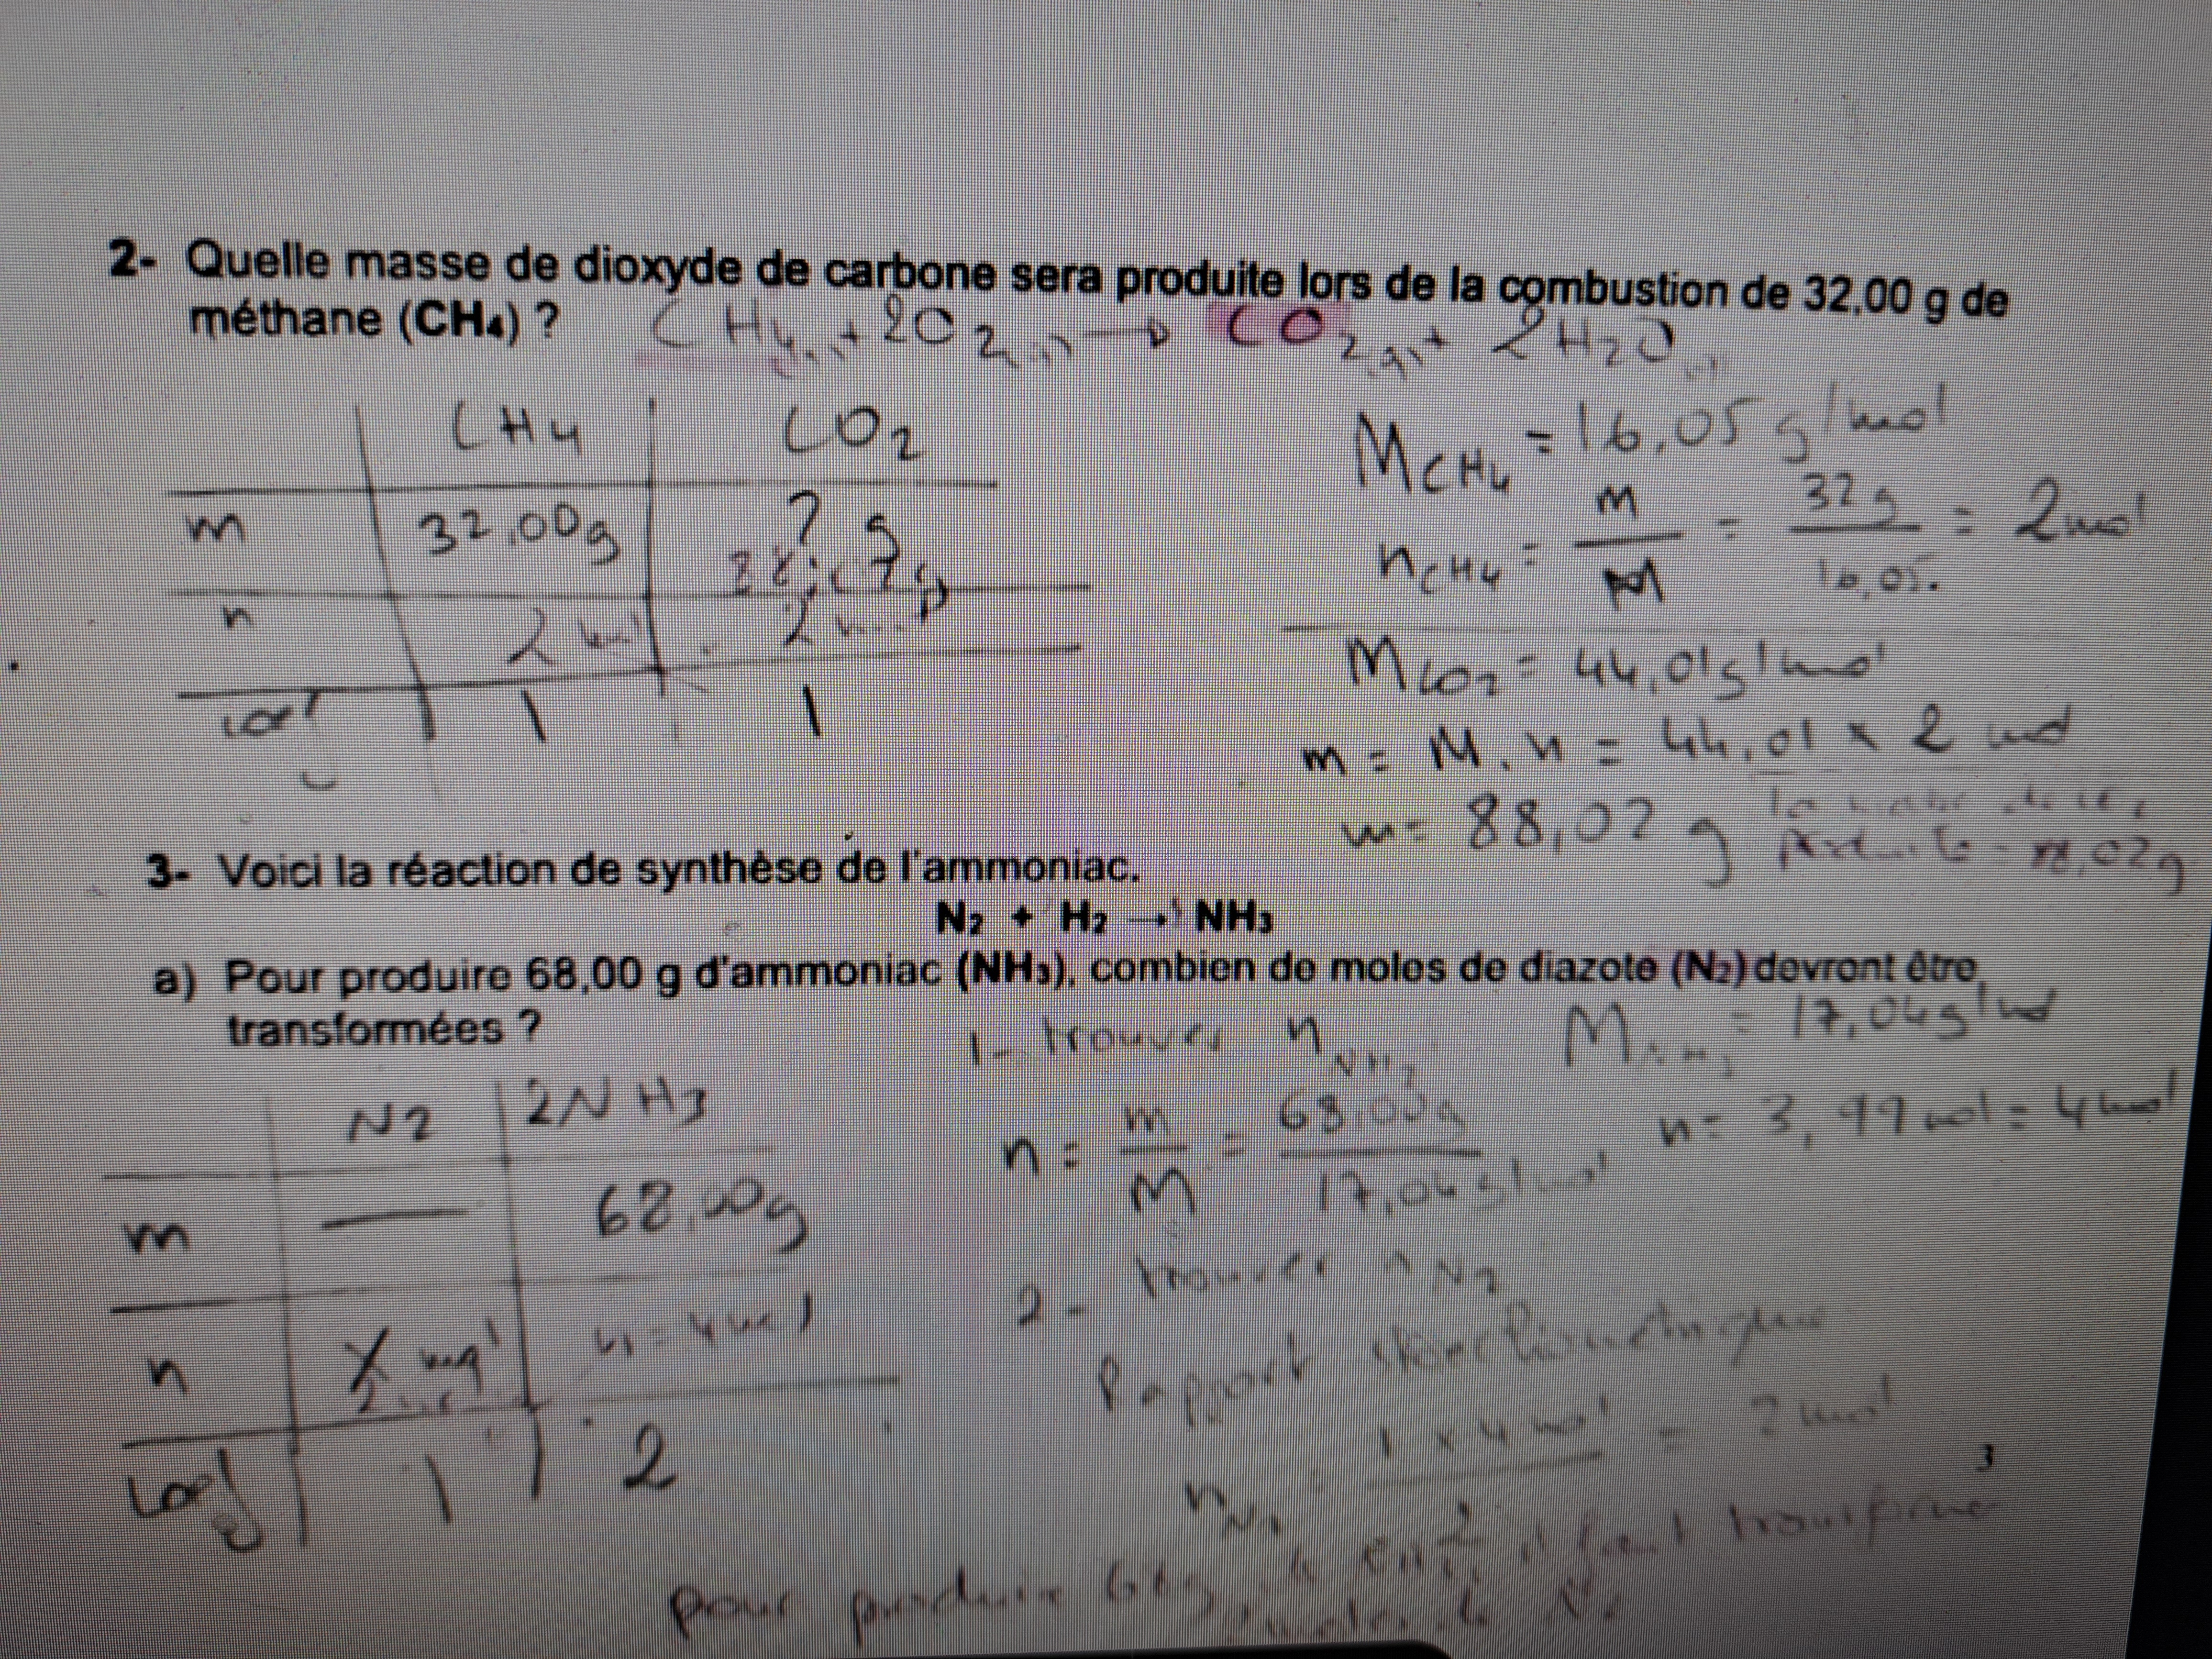 2- Quelle masse de dioxyde de carbone sera produite lors de la combustion de 32,00 g de
méthane (CH₄) ? CH₄ + 2O₂ → CO₂ + 2H₂O
CH₄ CO₂
m 32,00g ? g
n 2 2
1 1
M CH₄ = 16,05 g/mol
n CH₄ = m/M = 32g/16,05 = 2mol
M CO₂ = 44,01g/mol
m = M.n = 44,01 x 2 mol
m = 88,02 g
produite = 88,02g
3- Voici la réaction de synthèse de l'ammoniac.
N₂ + H₂ → NH₃
a) Pour produire 68,00 g d'ammoniac (NH₃), combien de moles de diazote (N₂) devront être
transformées ?
1- trouver n NH₃ M NH₃ = 17,04g/mol
N₂ 2NH₃
m — 68,00g
n n = 4mol
coef 1 2
n = m/M = 68,00g/17,04g/mol n = 3,99mol = 4mol
2- trouver n N₂
Rapport stoechiométrique
n N₂ = 1 x 4 mol/2 = 2mol
3
pour produire 68g il faut transformer
N₂